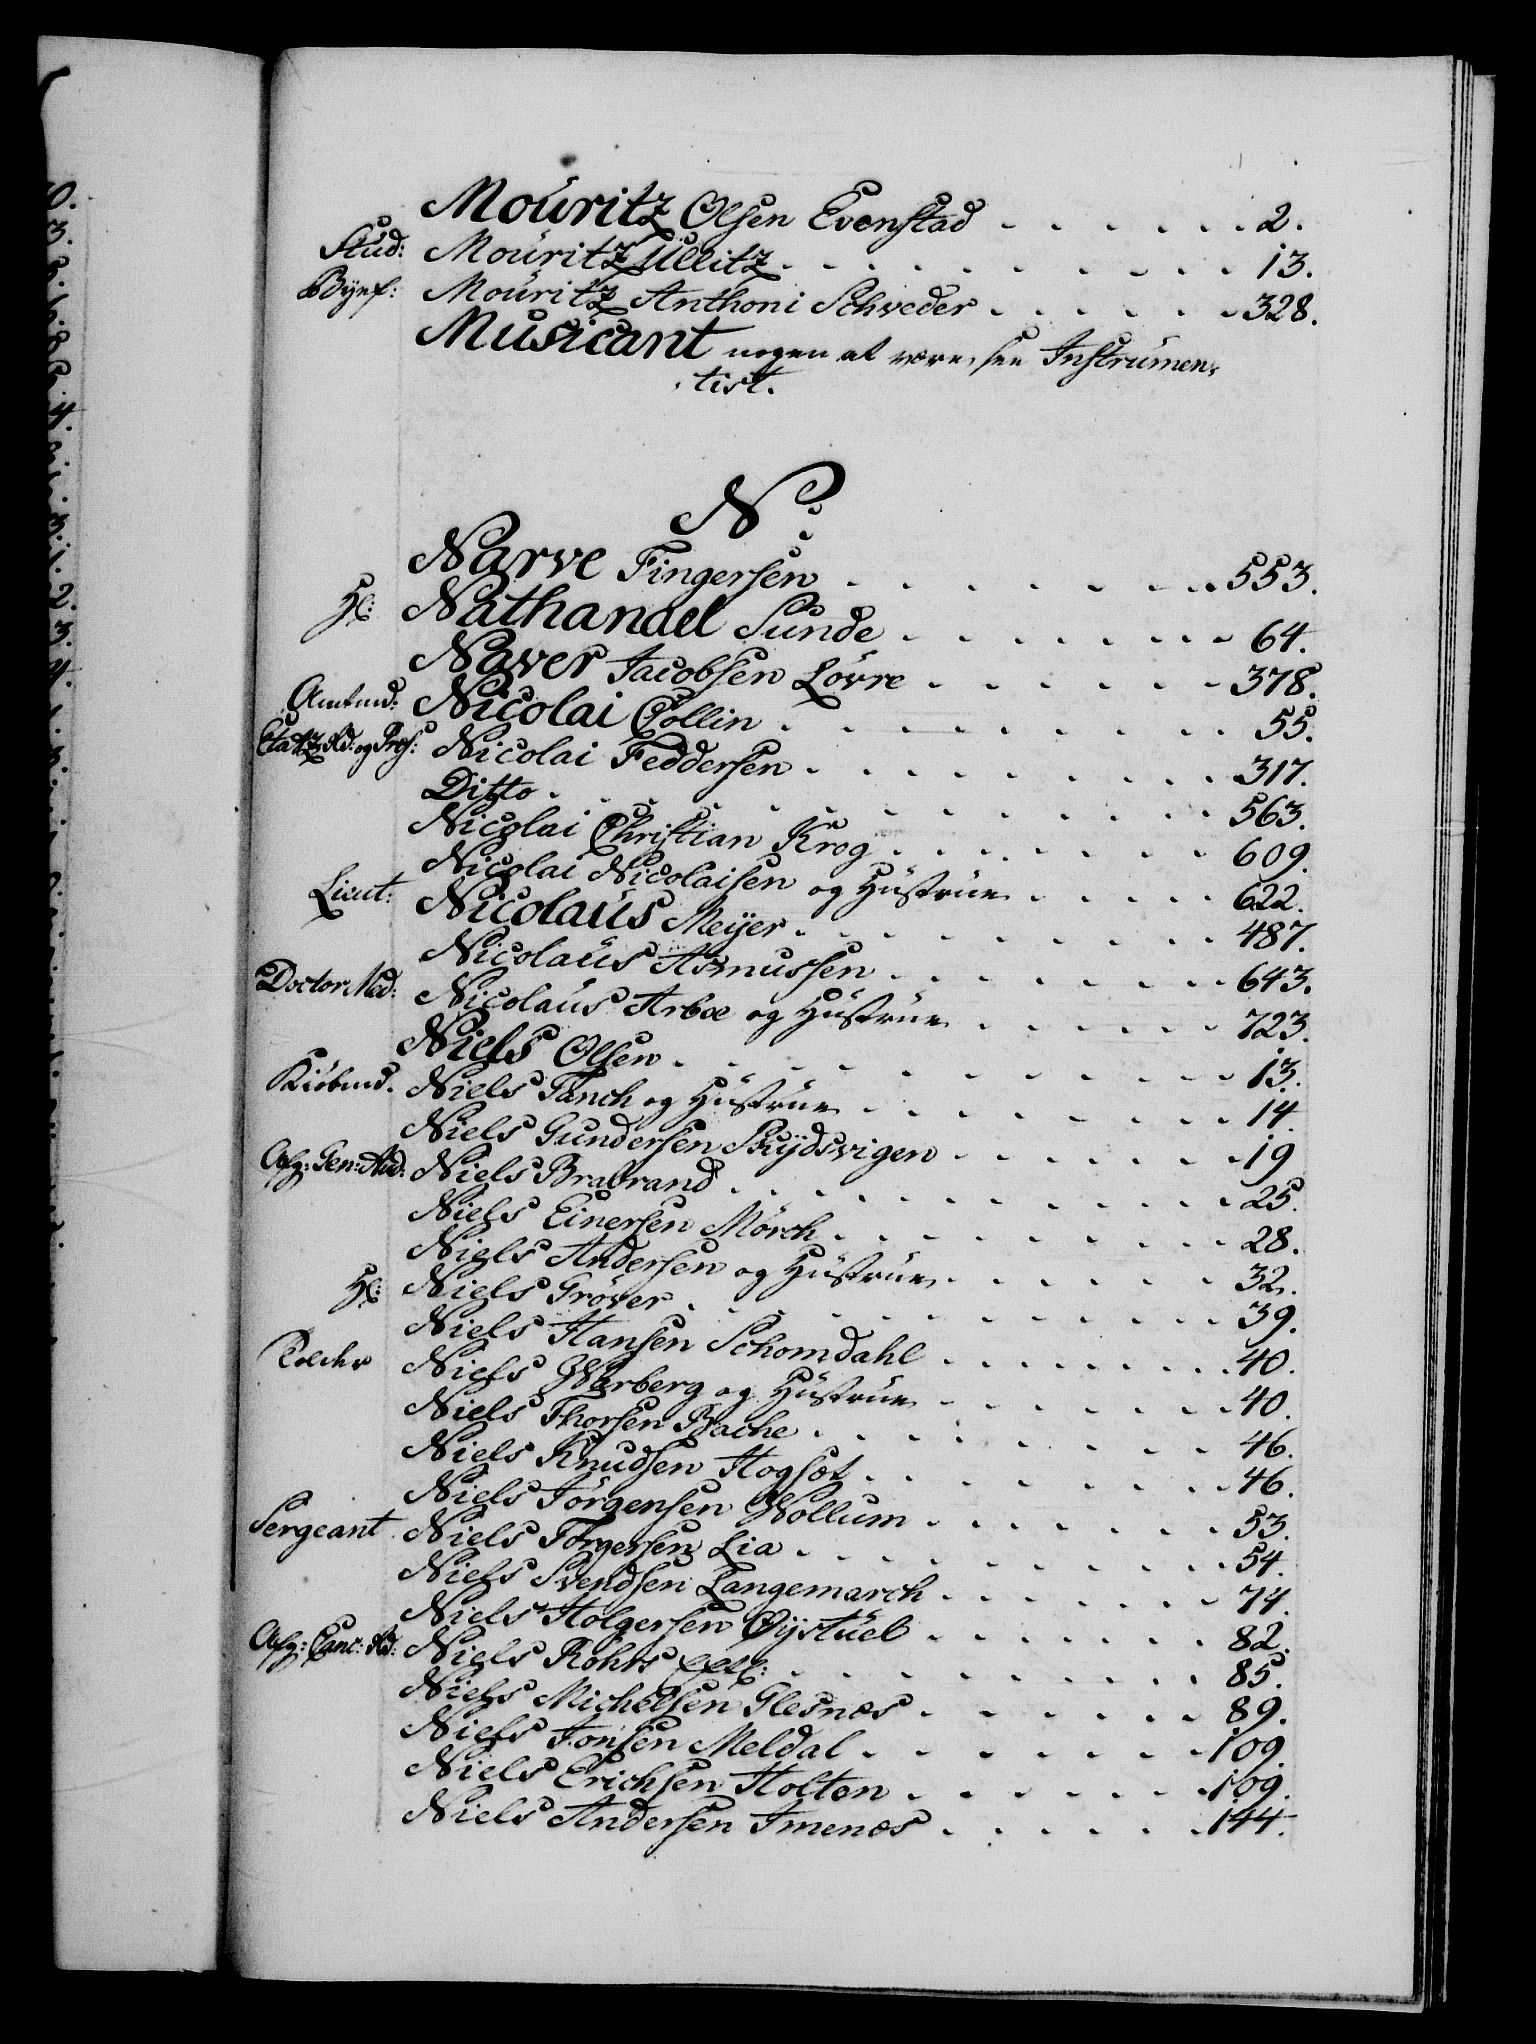 Mouritz Olsen Evenstad - - - - - - 2.
Stud: Mouritz Ullitz - - - - - - - - 13.
Bÿef: Mouritz Anthoni Schveder - - - - - 328.
Musicant nogen at være, see Instrumen,
tist.
N:
Narve Fingersen - - - - - - - 553.
Hl: Nathanael Sunde - - - - - - - 64.
Naver Jacobsen Lövre - - - - - - 378.
Amtmd: Nicolai Collin - - - - - - - - 55.
Etatz Rd: og Prof: Nicolai Feddersen - - - - - - - - 317.
Ditto - - - - - - - - - - - 563.
Nicolai Christian Krog - - - - - - - 609.
Nicolai Nicolaisen og Hustrue - - - - - 622.
Lieut: Nicolaus Meÿer - - - - - - - - 487.
Nicolaus Asmussen - - - - - - - 643.
Doctor Med: Nicolaus Arboe og Hustrue - - - - - - 723.
Niels Olsen - - - - - - - - - - 13.
Kiöbmd. Niels Tanch og Hustrue - - - - - - - - 14.
Niels Gundersen Skÿdsvigen - - - - - - - 19
Afg: Gen: Aud: Niels Brabrand - - - - - - - - - - 25.
Niels Einersen Mörch - - - - - - - - 28.
Niels Andersen og Hustrue - - - - - - 32.
Hl: Niels Gröver - - - - - - - - - - 39.
Niels Hansen Schomdahl - - - - - - - 40.
Niels Warberg og Hustrue - - - - - - 40.
Niels Thorsen Bache - - - - - - - - 46.
Niels Knudsen Hogset - - - - - - - 46.
Niels Jörgensen Wollum - - - - - - 53.
Sergeant Niels Torgersen Lia - - - - - - - - 54.
Niels Svendsen Langemarch - - - - - - 74.
Niels Holgersen Öÿstuel - - - - - - 82.
Afg: Canc: Rd: Niels Rohrs - - - - - - - - 85.
Niels Michelsen Glesnæs - - - - - - 89.
Niels Jonsen Meldal - - - - - - - 109.
Niels Erichsen Holten - - - - - - 109.
Niels Andersen Imenæs - - - - - - 144.